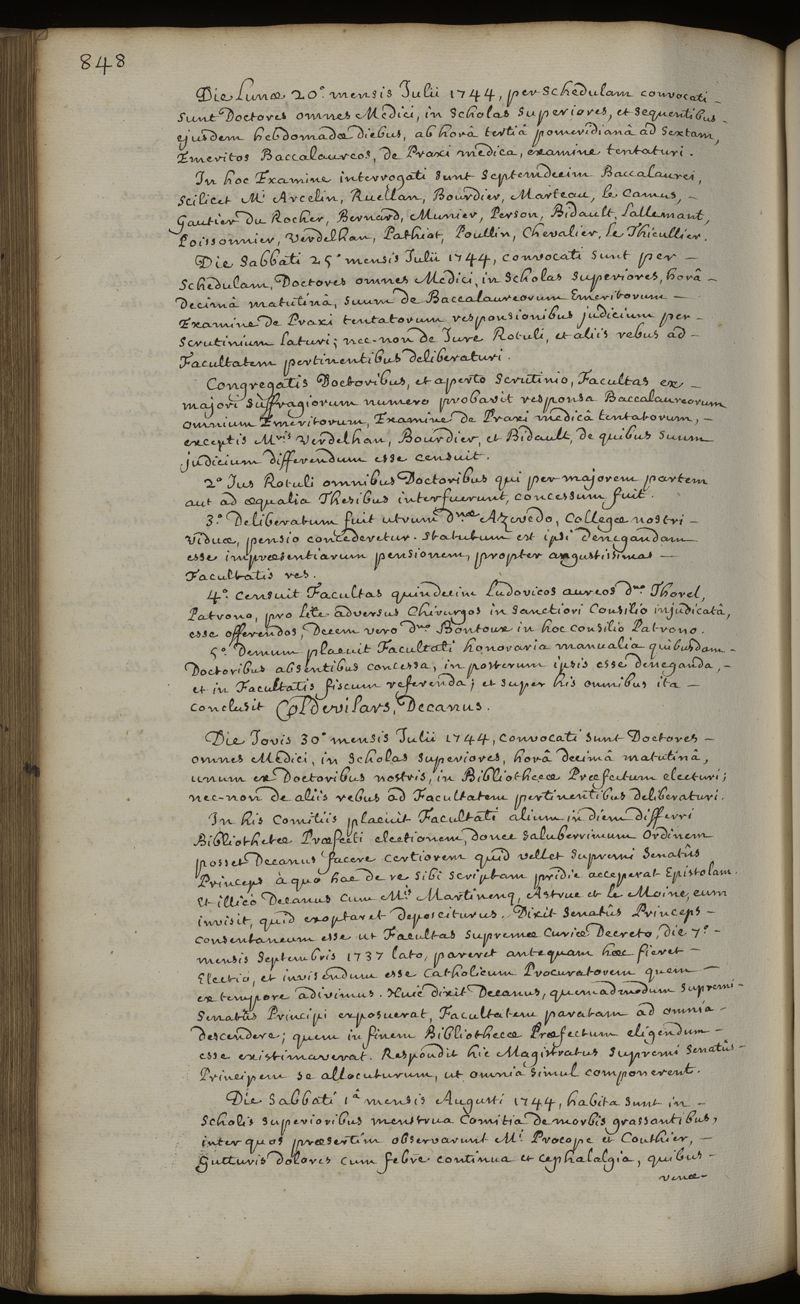 848
Die Lunæ 20ª mensis Julii 1744, per schedulam convocati
sunt Doctores omnes Medici, in Scholas superiores, et sequentibus
ejusdem hebdomadæ diebus, ab horâ tertiâ pomeridianâ ad sextam,
Emeritos Baccalaureos, de Praxi medica, examine tentaturi.
In hoc Examine interrogati sunt septemdecim Baccalaurei,
Scilicet Mⁱ Arcelin, Ruellan, Bourdier, Marteau, Le Camus,
Gautier Du Rocher, Bernard, Munier, Person, Bidault, Lallemant,
Poissonnier, Verdelhan, Pathiot, Poullin, Chevalier, Le Thieullier.
Die Sabbati 25ª mensis Julii 1744, convocati sunt per
schedulam, Doctores omnes Medici, in Scholas superiores, horâ
decimâ matutinâ, suum de Baccalaureorum Emeritorum
Examine de Praxi tentatorum responsionibus judicium per
scrutinium laturi; nec-non de Jure Rotuli, et aliis rebus ad
Facultatem pertinentibus deliberaturi.
Congregatis Doctoribus, et aperto scrutinio, Facultas ex
majori suffragiorum numero probavit responsa Baccalaureorum
omnium Emeritorum, Examine de Praxi medicâ tentatorum,
exceptis Mʳⁱˢ Verdelhan, Bourdier, et Bidault, de quibus suum
judicium differendum esse censuit.
2º Jus Rotuli omnibus Doctoribus qui per majorem partem
aut ad æqualia Thesibus interfuerunt, concessum fuit.
3º Deliberatum fuit utrum Dⁿᵃ Azevedo, Collegæ nostri
viduæ, pensio concederetur. Statutum est ipsi denegandam
esse impræsentiarum pensionem, propter angustissimas
Facultatis res.
4º Censuit Facultas quindecim Ludovicos aureos dⁿᵒ Thorel,
Patrono, pro lite adversus Chirurgos in sanctiori Consilio injudicatâ,
esse offerendos; Decem vero dⁿᵒ Bontoux in hoc consilio Patrono.
5º Demum placuit Facultati honoraria manualia quibusdam
Doctoribus absentibus concessa, in posterum ipsis esse deneganda,
et in Facultatis fiscum referenda; et super his omnibus ita
conclusit Col De vilars, Decanus.
Die Jovis 30ª mensis Julii 1744, convocati sunt Doctores
omnes Medici, in Scholas superiores, horâ decimâ matutinâ,
unum ex Doctoribus nostris, in Bibliothecæ Præfectum electuri;
nec-non de aliis rebus ad Facultatem pertinentibus deliberaturi.
In his Comitiis placuit Facultati alium in diem differri
Bibliothecæ Præfecti electionem, donec saluberrimum Ordinem
posset Decanus facere certiorem quid vellet supremi Senatûs
Princeps à quo hac de re sibi scriptam pridie acceperat Epistolam.
Et illico Decanus cum Mⁱˢ Martinenq, Astruc et le Moine, eum
invisit, quid exoptaret deposciturus. Dixit Senatûs Princeps
consentaneum esse ut Facultas supremæ Curiæ Decreto, die 7ª
mensis Septembris 1737 lato, pareret antequam hæc fieret
Electio, et invisendum esse Catholicum Procuratorem quem
ex tempore adivimus. Huic dixit Decanus, quemadmodum supremi
Senatûs Principi exposuerat, Facultatem paratam ad omnia
descendere; quem in finem Bibliothecæ Præfectum eligendum
esse existimaverat. Respondit hic Magistratus supremi Senatûs
Principem se allocuturum, ut omnia simul componerent.
Die Sabbati 1â mensis Augusti 1744, habita sunt in
Scholis superioribus menstrua Comitia de morbis grassantibus,
inter quos præsertim observarunt Mⁱ Procope et Couthier,
Gutturis dolores cum febre continua et cephalalgia, quibus
venæ